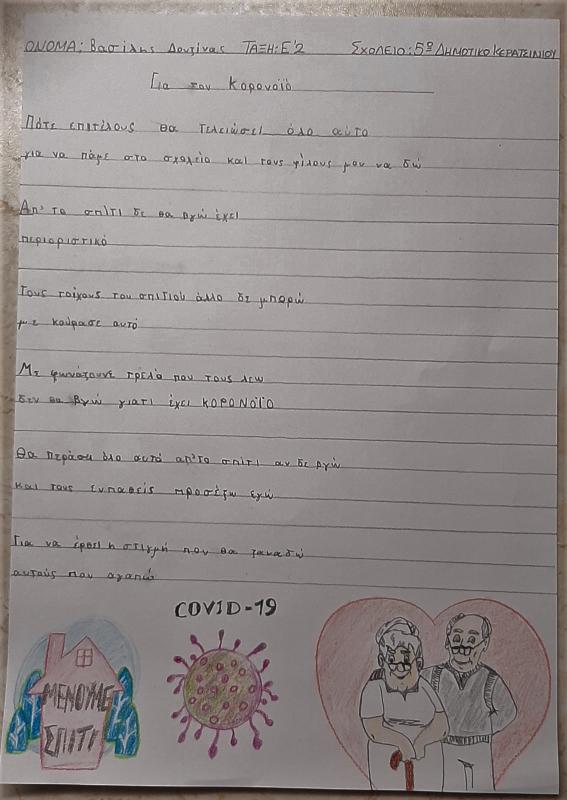 ΟΝΟΜΑ: Βασίλης Δουζίνας ΤΑΞΗ: Ε'2 ΣΧΟΛΕΙΟ: 5º ΔΗΜΟΤΙΚΟ ΚΕΡΑΤΣΙΝΙΟΥ
Για τον Κορονοϊό
Πότε επιτέλους θα τελειώσει όλο αυτό
για να πάμε στο σχολείο και τους φίλους μου να δώ
Απ' το σπίτι δε θα βγώ έχει
περιοριστικό
Τους τοίχους του σπιτιού άλλο δε μπορώ
με κούρασε αυτό
Με φωνάζουνε τρελό που τους λεω
δεν θα βγώ γιατι έχει ΚΟΡΟΝΟΪΟ
Θα περάσει όλο αυτό απ'το σπίτι αν δε βγώ
και τους ευπαθείς προσέξω εγώ
Για να έρθει η στιγμή που θα ξαναδώ
αυτούς που αγαπώ
COVID-19
ΜΕΝΟΥΜΕ
ΣΠΙΤΙ